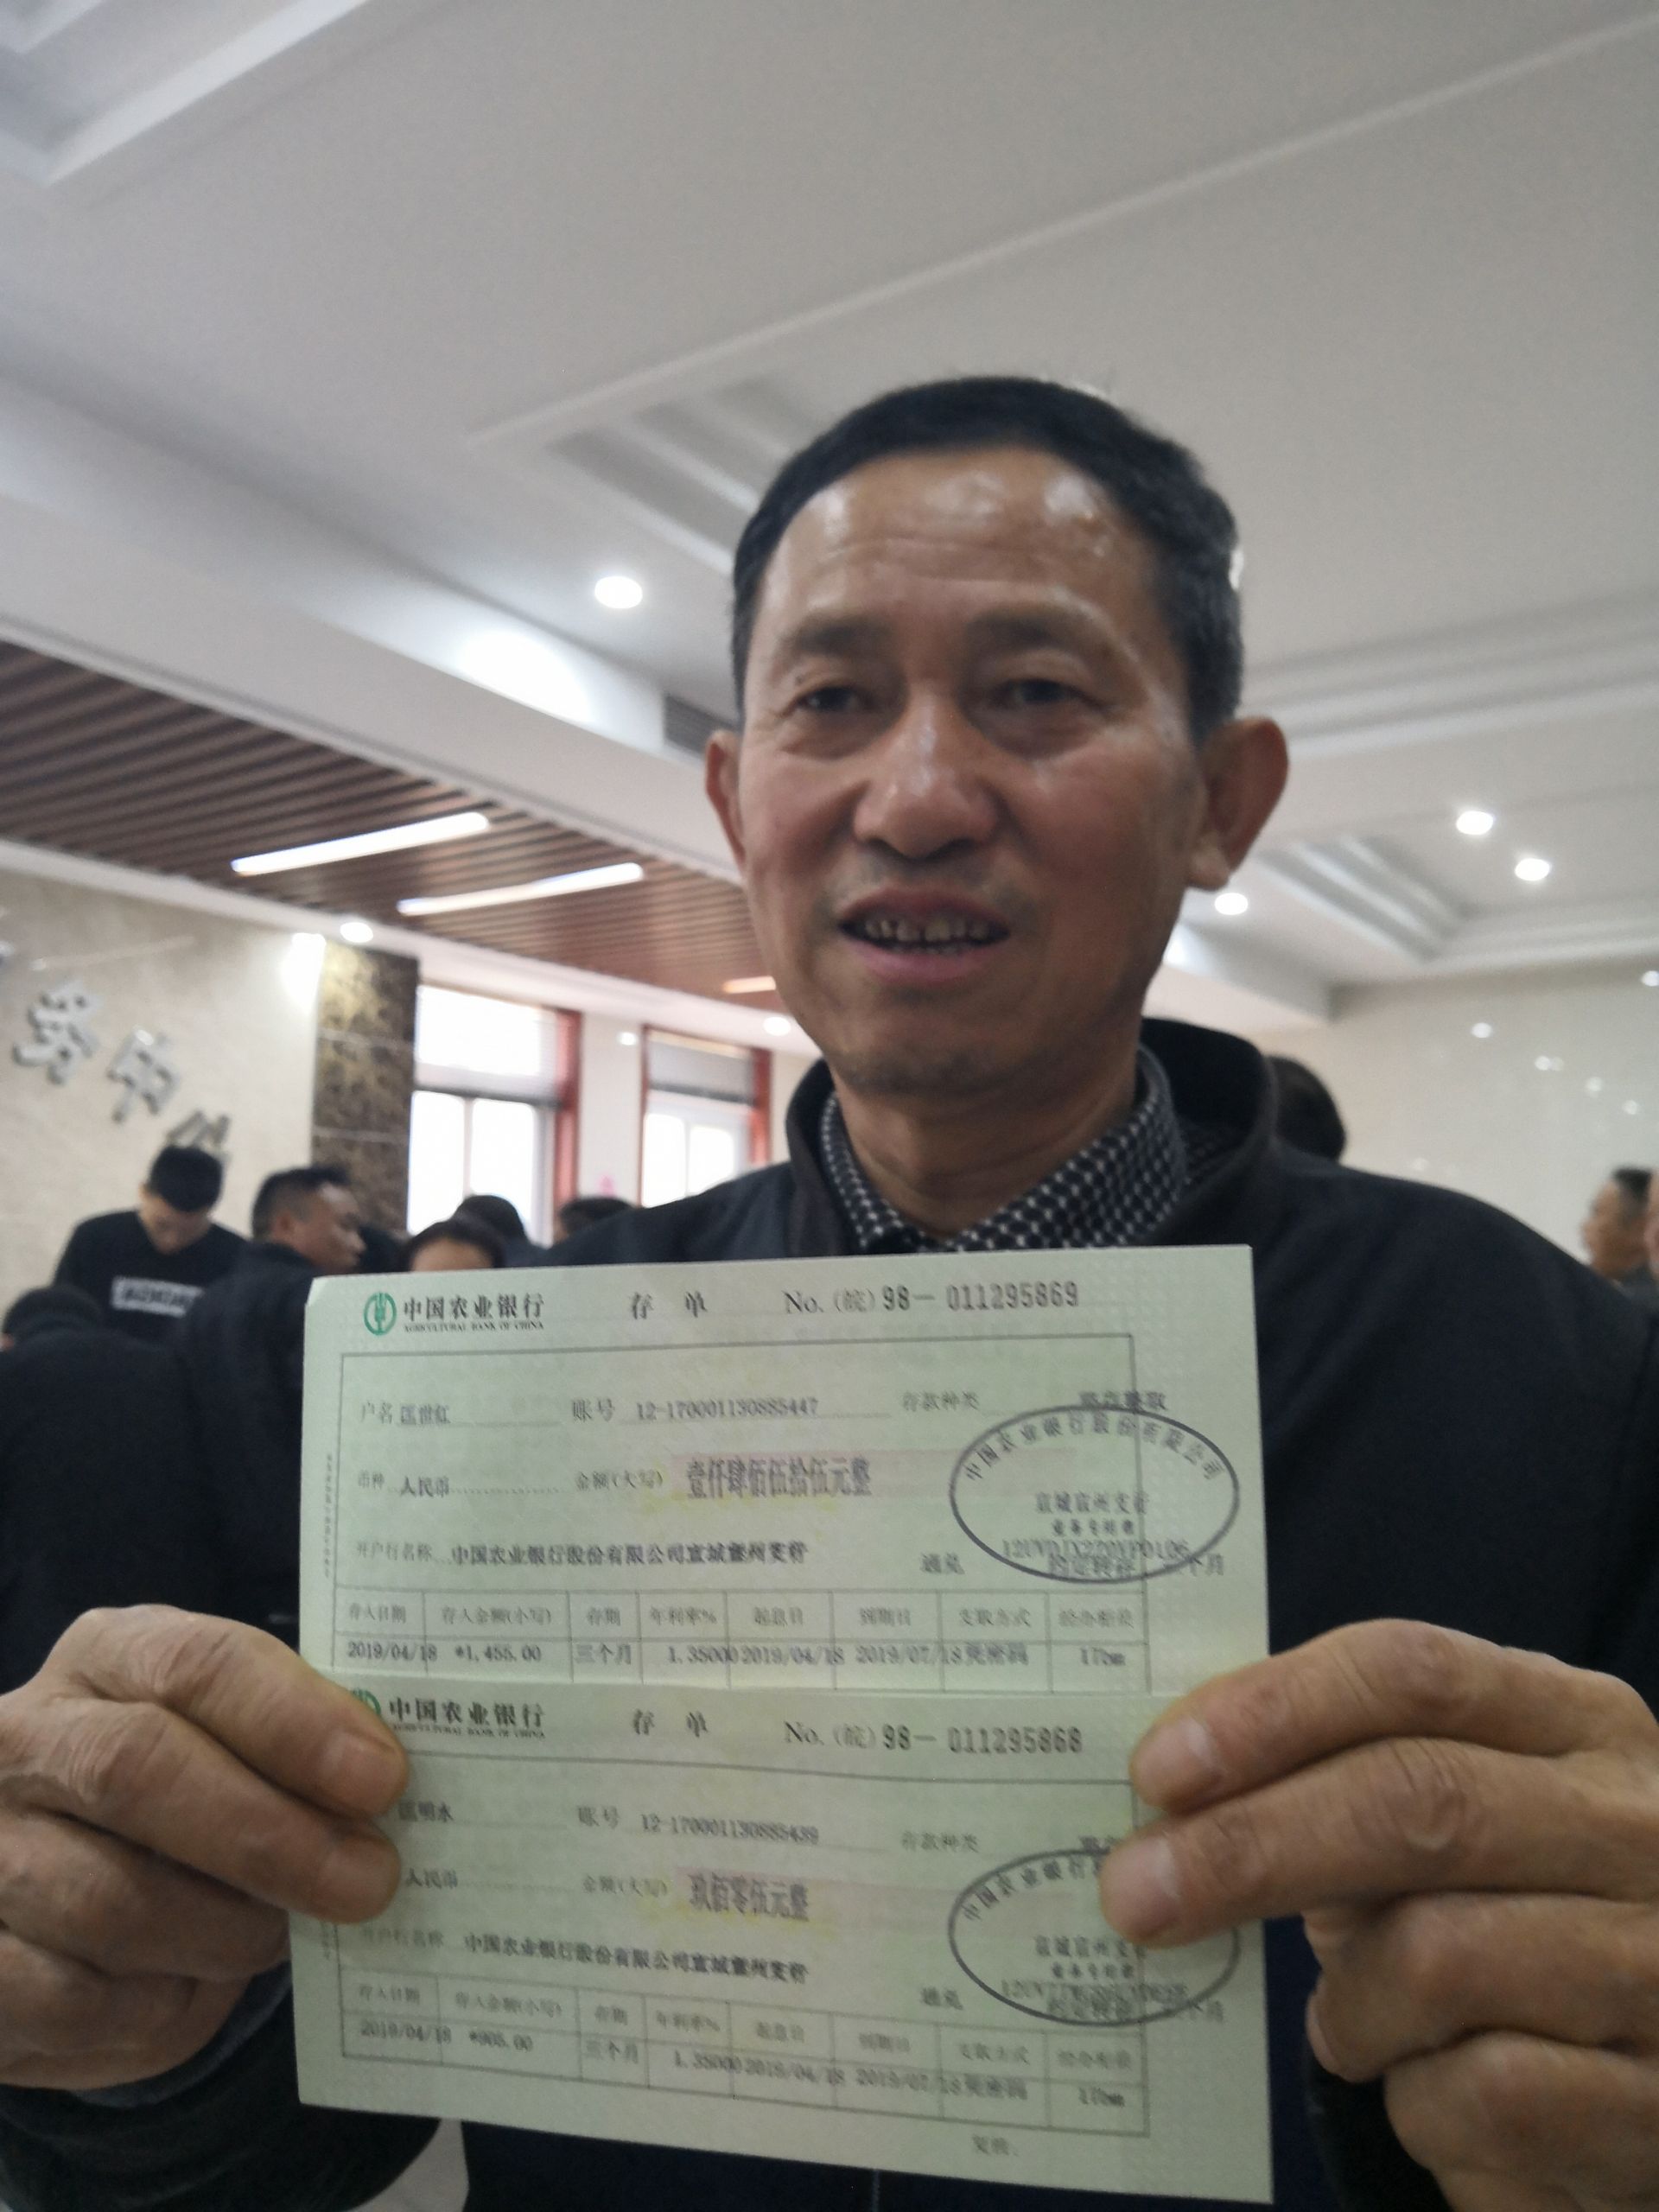 务中心
中国农业银行 存单 No.(皖)98— 011295869
AGRICULTURAL BANK OF CHINA
户名 匡世红 账号 12-170001130885447 存款种类 整存整取
币种 人民币 金额(大写) 壹仟肆佰伍拾伍元整
开户行名称 中国农业银行股份有限公司宣城宣州支行 通兑 约定转存 三个月
中国农业银行股份有限公司
宣城宣州支行
业务专用章
存入日期 存入金额(小写) 存期 年利率% 起息日 到期日 支取方式 经办柜员
2019/04/18 *1,455.00 三个月 1.35000 2019/04/18 2019/07/18 凭密码 17bm
中国农业银行 存单 No.(皖)98— 011295868
AGRICULTURAL BANK OF CHINA
匡明水 账号 12-170001130885439 存款种类 整存
人民币 金额(大写) 玖佰零伍元整
开户行名称 中国农业银行股份有限公司宣城宣州支行 通兑 约定转存 三个月
中国农业银行
宣城宣州支行
业务专用章
存入日期 存入金额(小写) 存期 年利率% 起息日 到期日 支取方式 经办柜员
2019/04/18 *905.00 三个月 1.35000 2019/04/18 2019/07/18 凭密码 17bm
复核: